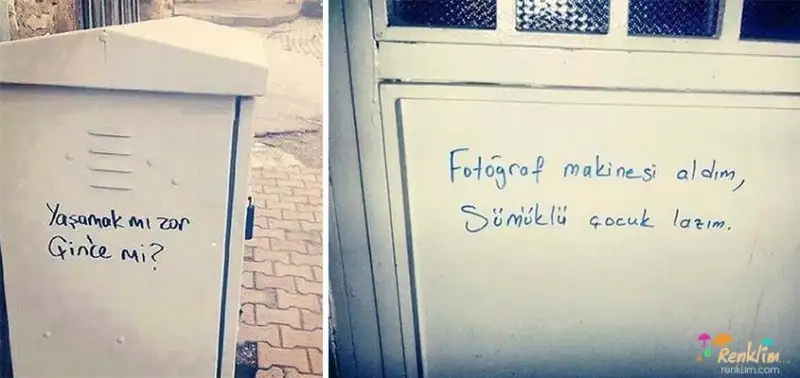 Yaşamak mı zor
Çin'ce mi?
Fotoğraf makinesi aldım,
Sümüklü çocuk lazım.
Renklim...
renklim.com